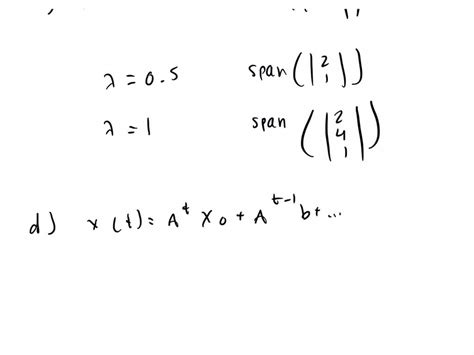 λ = 0.5 span([2 1])
λ = 1 span([2 4 1])
d) x(t) = A^t x0 + A^(t-1) b + ...